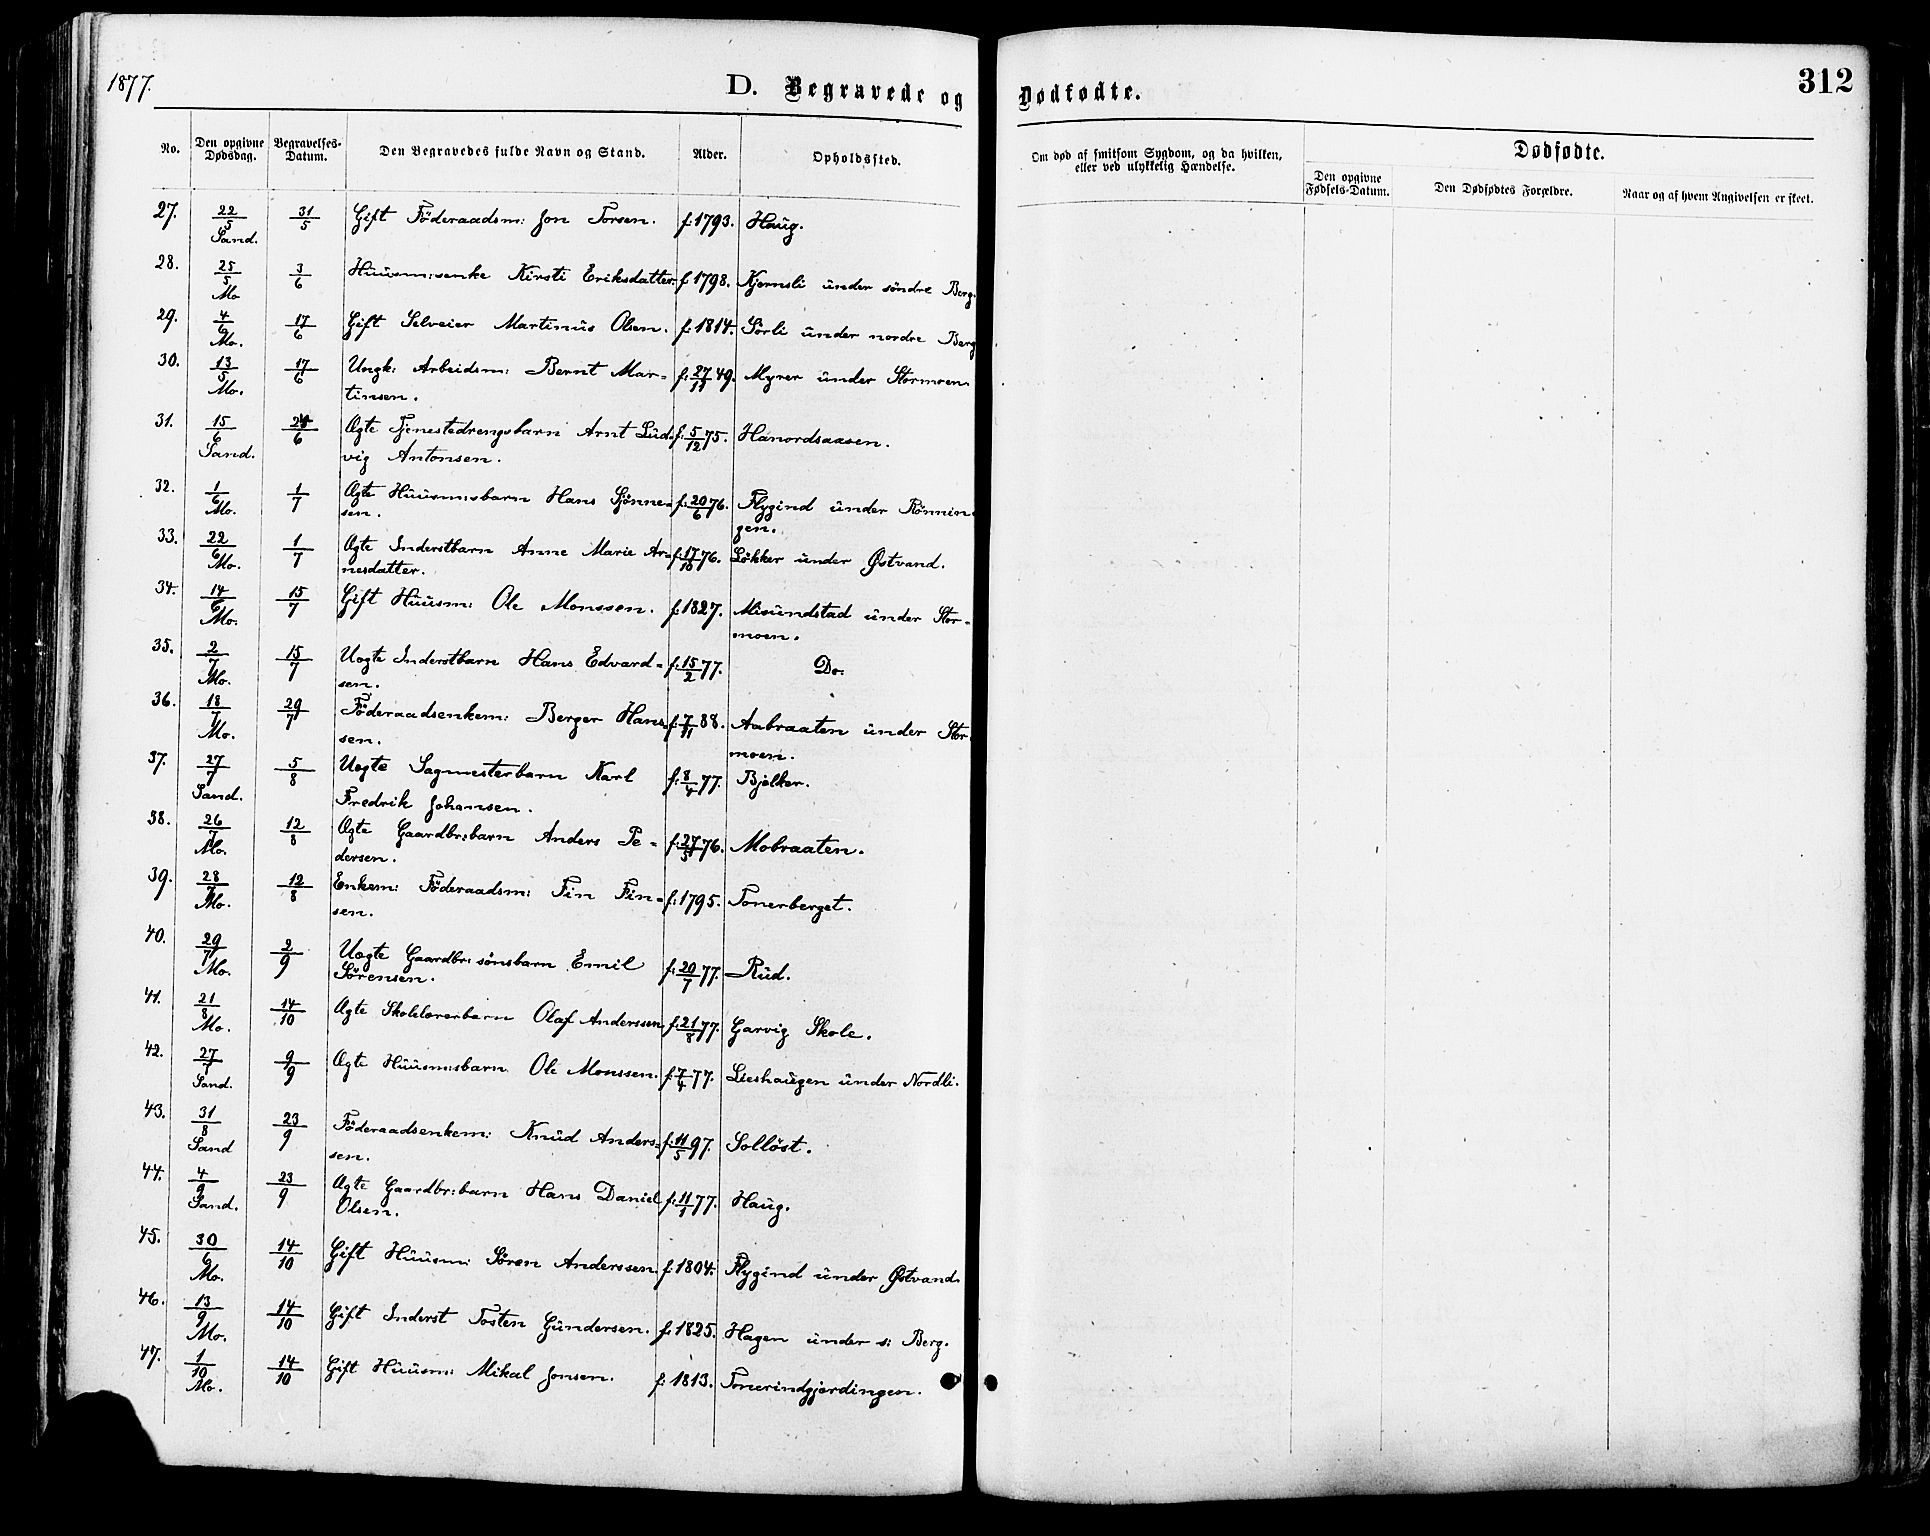 1877.
D. Begravede og Dødfødte.
312
No.
Den opgivne Dødsdag.
Begravelses-Datum.
Den Begravedes fulde Navn og Stand.
Alder.
Opholdssted.
Om død af smitsom Sygdom, og da hvilken,
eller ved ulykkelig Hændelse.
Dødfødte.
Den opgivne Fødsels-Datum.
Den Dødfødtes Forældre.
Naar og af hvem Angivelsen er skeet.
27. 22/5 31/5 Gift Föderaadsm: Jon Torsen. f: 1793. Haug.
Sand.
28. 25/5 3/6 Huusm:enke Kirsti Eriksdatter. f 1798. Kjernsli under söndre Berg.
Mo
29. 4/6 17/6 Gift Selveier Martinus Olsen. f: 1814. Sörli under nordre Berg
Mo.
30. 13/5 17/6 Ungk: Arbeidsm: Bernt Mar- f: 27/11 49. Myrer under Stormoen.
Mo. tinsen.
31. 15/6 /6 Ægte Tjenestedrengsbarn Arnt Lud- f: 5/12 75. Hanordsaasen.
Sand. vig Antonsen.
32. 1/6 1/7 Ægte Huusm:sbarn Hans Sjönne- f: 20/6 76. Flygind under Rönnin-
Mo. sen. gen.
33. 22/6 1/7 Ægte Inderstbarn Anne Marie Ar- f: 17/10 76. Lökker under Østvand.
Mo. nesdatter.
34. 14/6 15/7 Gift Huusm: Ole Monssen. f: 1827. Misundstad under Stor-
Mo. moen.
35. 2/7 15/7 Uægte Inderstbarn Hans Edvard- f: 15/2 77. Do.
Mo. sen.
36. 18/7 29/7 Föderaadsenkem: Berger Hans- f: 7/11 88. Aabraaten under Stor-
Mo. sen. moen.
37. 27/7 5/8 Uægte Sagmesterbarn Karl f: 8/4 77. Bjölker.
Sand. Fredrik Johansen.
38. 26/7 12/8 Ægte Gaardbr:barn Anders Pe- f: 27/ 76. Mobraaten.
Mo. dersen.
39. 28/7 12/8 Enkem: Föderaadsm: Fin Fin- f: 1795. Tonerberget.
Mo. sen.
40. 29/7 2/9 Uægte Gaardbr: sönsbarn Emil f: 20/7 77. Rud.
Mo. Sörensen.
41. 21/8 14/10 Ægte Skolelærerbarn Olaf Anderssen f: 21/8 77. Garvig Skole.
Mo.
42. 27/7 9/9 Ægte Huusm:sbarn Ole Monssen. f: 7/4 77. Lieshaugen under Nordli.
Sand.
43. 31/8 23/9 Föderaadsenkem: Knud Anders- f: 11/5 97. Solløst.
Sand sen.
44. 4/9 23/9 Ægte Gaardbr:barn Hans Daniel f: 11/1 77. Haug.
Sand. Olsen.
45. 30/6 14/10 Gift Huusm: Sören Anderssen. f: 1804. Flygind under Østvand.
Mo.
46. 13/9 14/10 Gift Inderst Tosten Gundersen. f: 1825. Hagen under s: Berg.
Mo.
47. 1/10 14/10 Gift Huusm: Mikal Jonsen. f: 1813. Tonerindgjerdingen.
Mo.